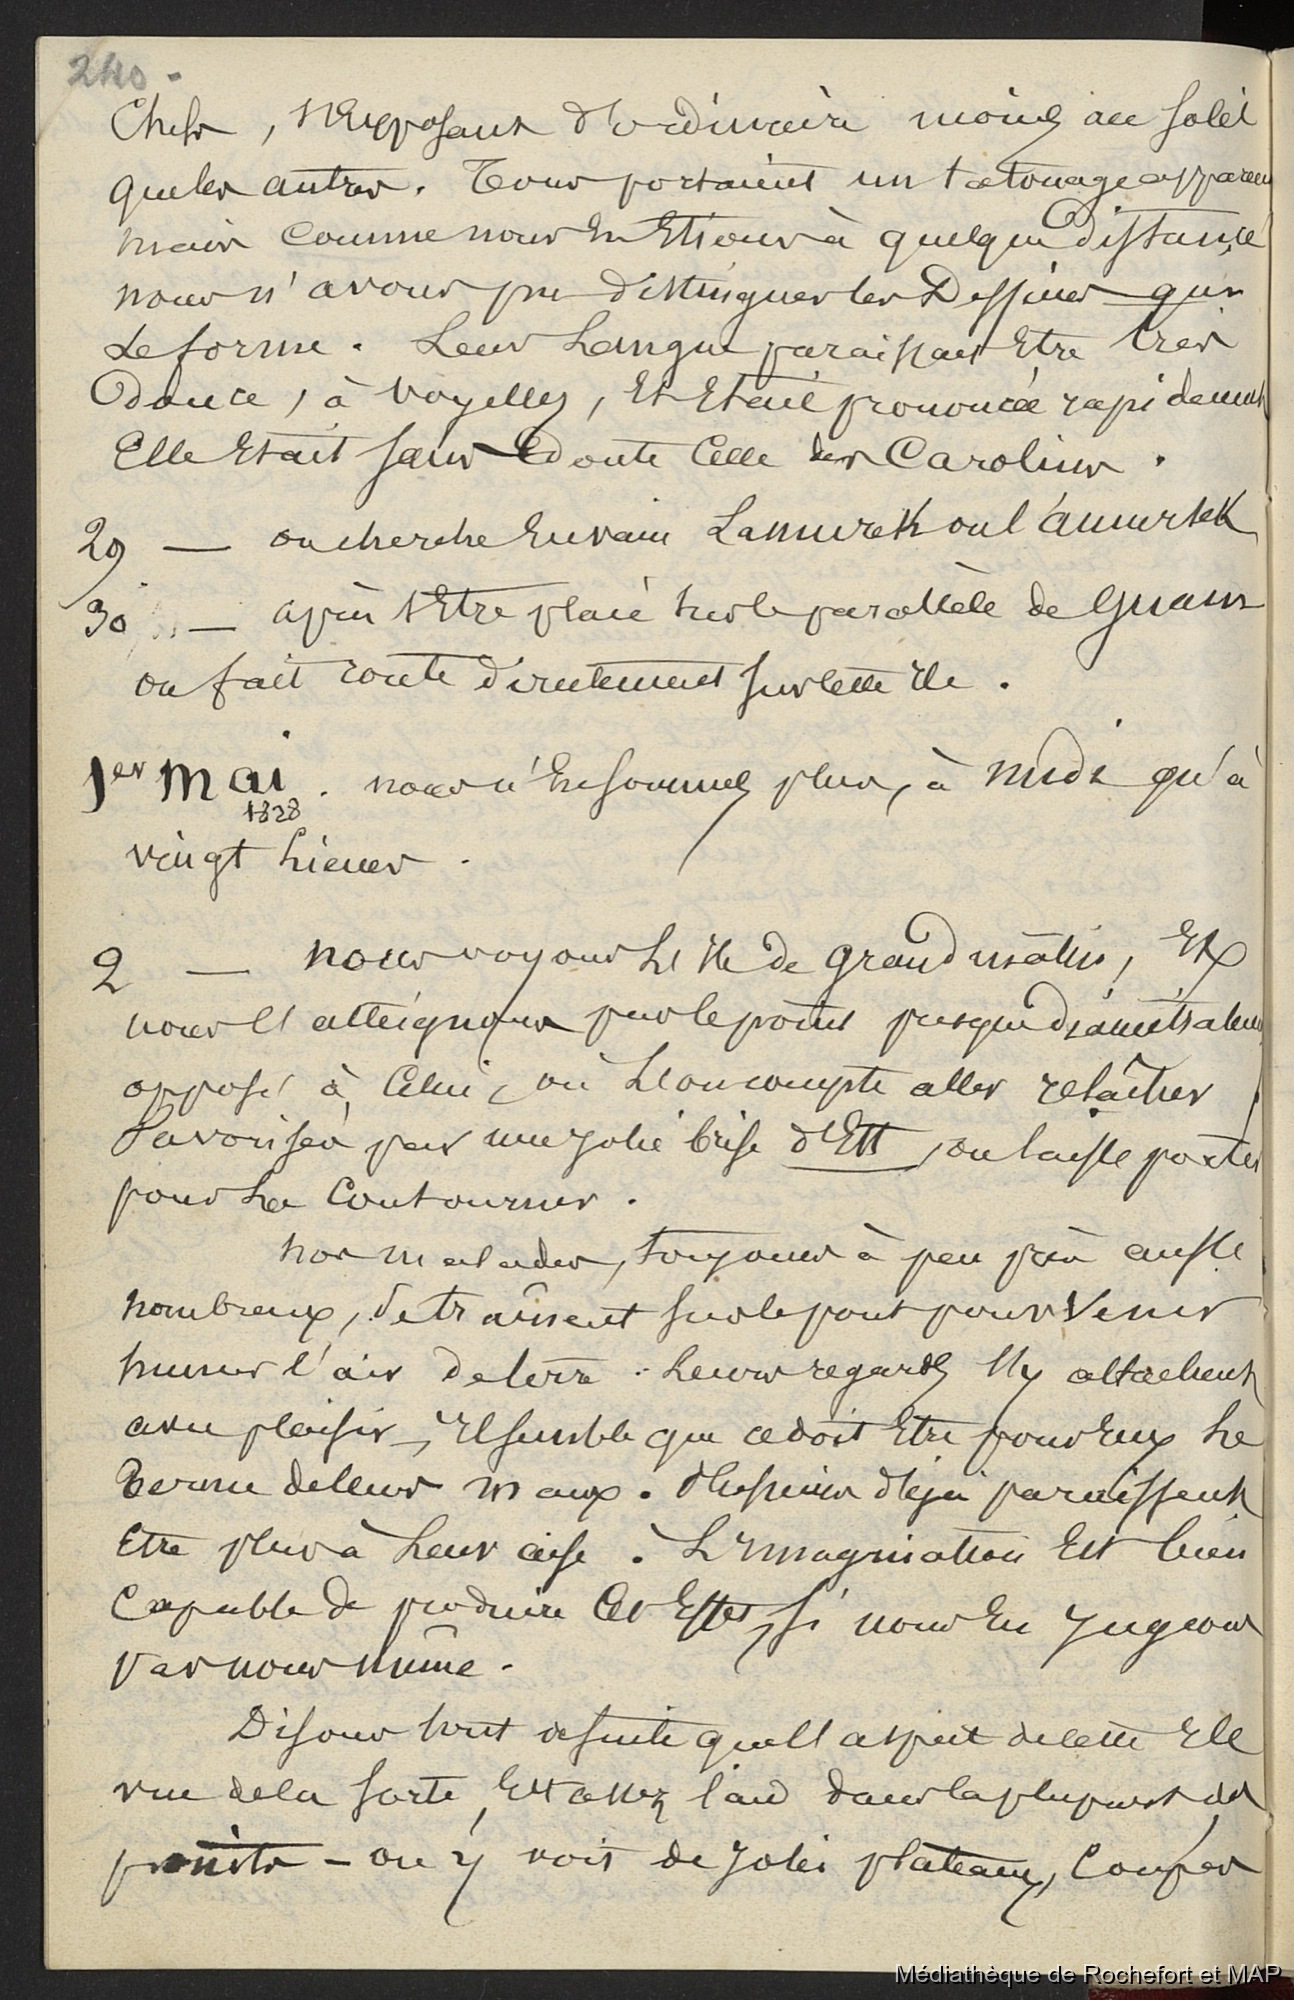 240.
Chefs, s'exposant d'ordinaire moins au soleil
que les autres. Tous portaient un tatouage apparent
mais comme nous en Etions à quelque distance
nous n'avons pu distinguer les Dessins qui
le forme. Leur Langue paraissait Etre très
douce, à voyelles, Et Etait prononcée rapidement
Elle Etait sans doute Celle des Carolines.
29 — on cherche En vain Lamurek ou l'amursek
30 — après s'Etre placé sur le parallèle de Guam
on fait route directement sur cette Ile.
1er mai. nous n'En sommes plus, à midi qu'à
1828
vingt Lieues.
2 — nous voyons L'Ile de grand matin, Et
nous l'atteignons par le point presque diamétralement
opposé à Celui, où L'on compte aller relâcher
favorisés par une jolie brise d'Est, on laisse porter
pour La Contourner.
nos malades, toujours à peu près aussi
nombreux, se traînent sur le pont pour Venir
humer l'air de terre. Leurs regards s'y attachent
avec plaisir, il semble que ce doit Etre pour Eux Le
Terme de leurs maux. déjà paraissent
Etre plus à Leur aise. L'Imagination Est bien
Capable de produire Ces Effets, si nous En jugeons
par nous même.
Disons tout de suite que l'aspect de cette Ile
vue de la sorte, Est assez laid dans la plupart des
points — on y voit de jolis plateaux, Coupés
Médiathèque de Rochefort et MAP